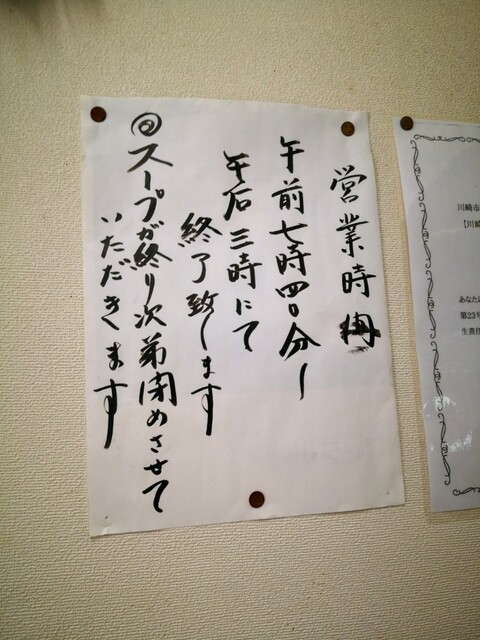 営業時間
午前七時四〇分〜
午后三時にて
終了致します
◎スープが終り次第閉めさせて
いただきます
川崎市
【川崎
あなたは
第23号
生責任